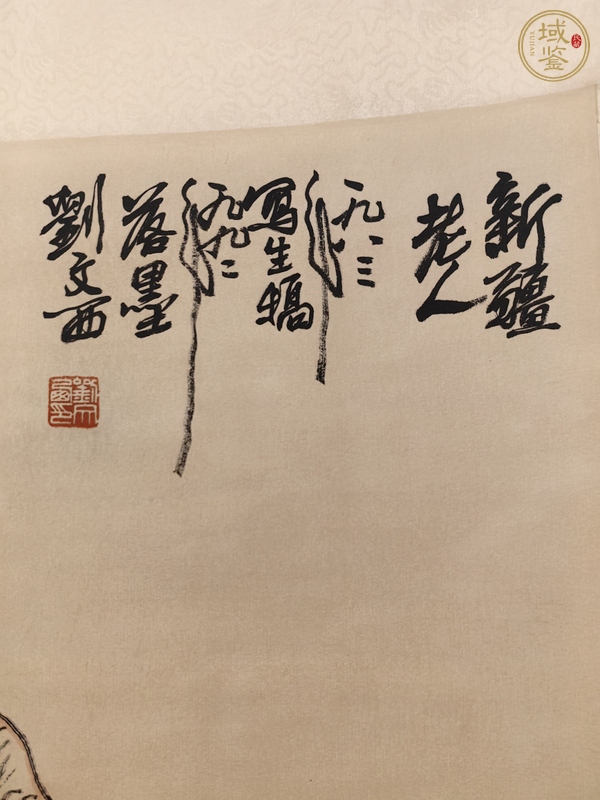 新疆
老人
一九八三
年
写生稿
一九九二
年
落墨
劉文西
劉文西印
域鉴
YUJIAN